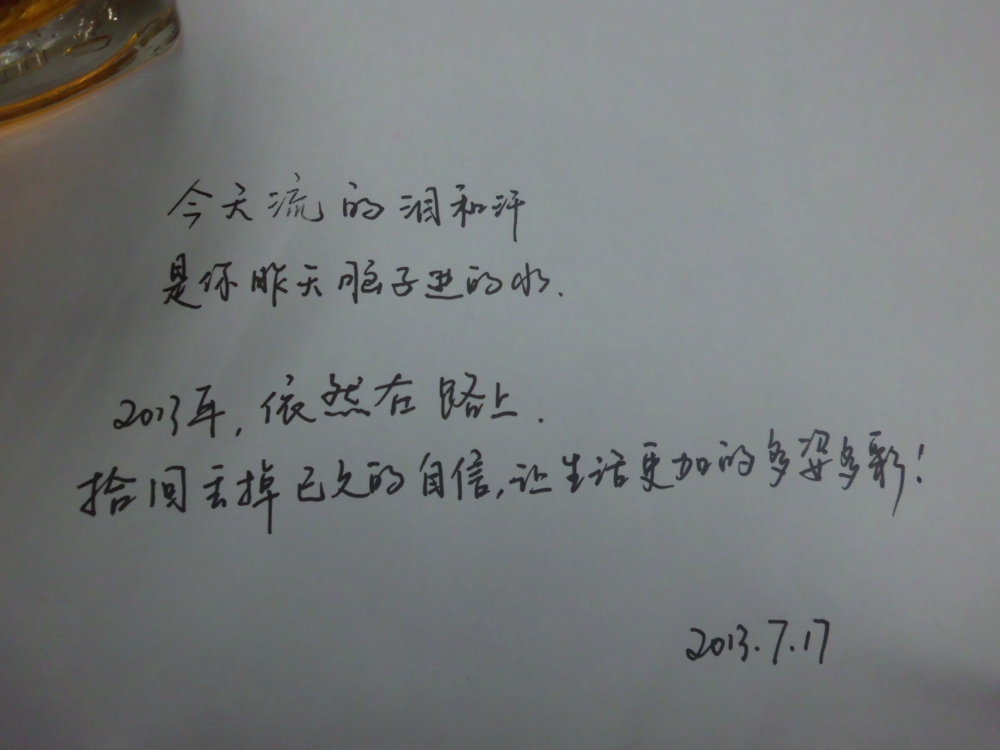 今天流的泪和汗
是你昨天脑子进的水.
2013年,依然在路上.
拾回丢掉已久的自信,让生活更加的多姿多彩!
2013.7.17